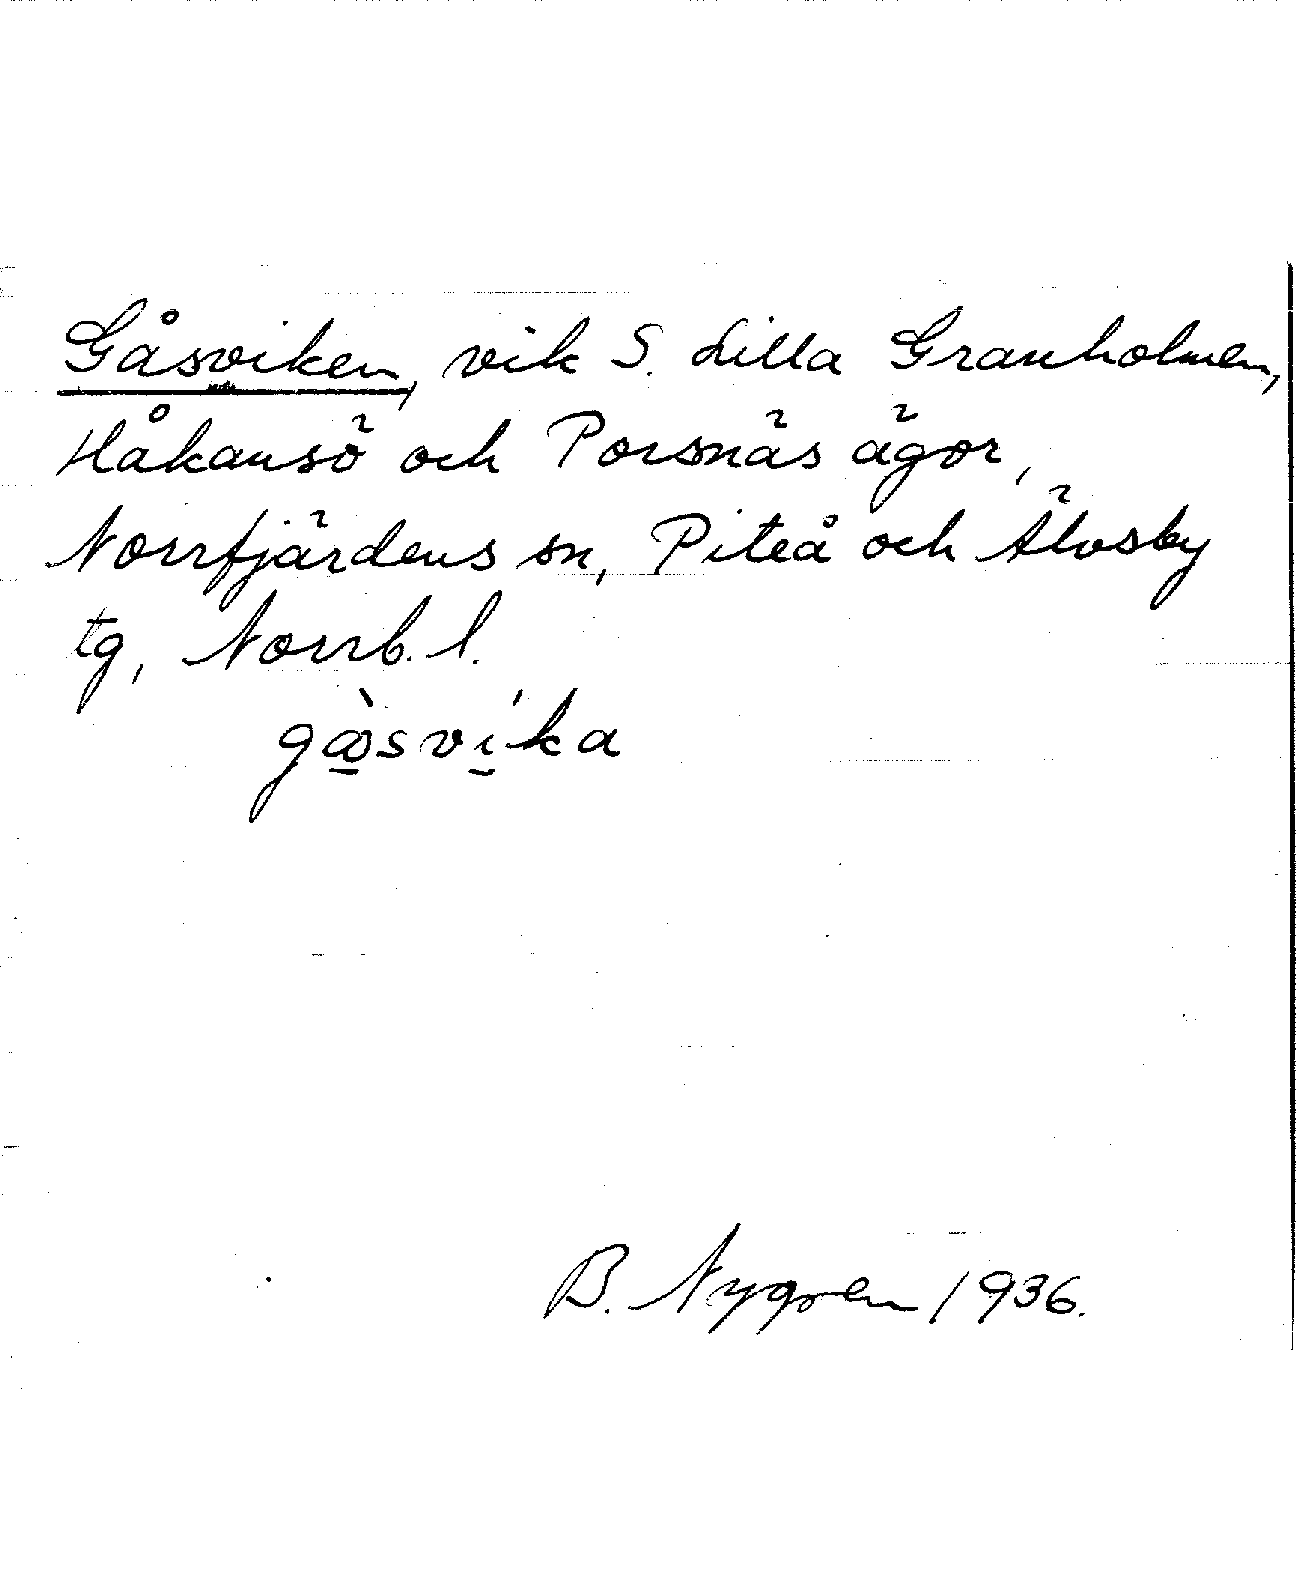 Gåsviken, vik S. Lilla Granholmen,
Håkansö och Porsnäs ägor,
Norrfjärdens sn, Piteå och Älvsby
tg, Norrb. l.
B. Nygren 1936.